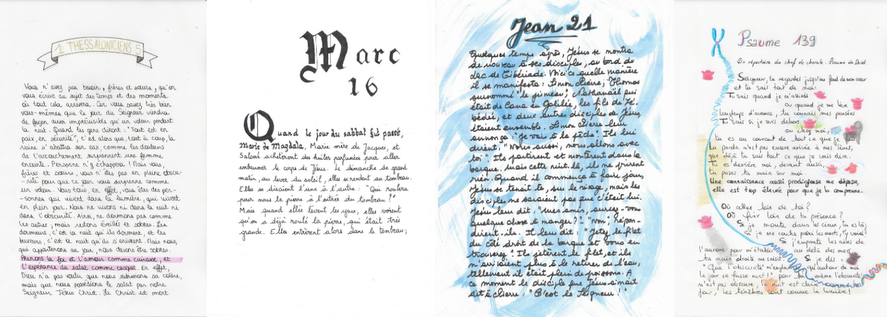 1 THESSALONICIENS 5
Vous n'avez pas besoin, frères et sœurs, qu'on
vous écrive au sujet des temps et des moments
où tout cela arrivera. Car vous savez très bien
vous-mêmes que le jour du Seigneur viendra
de façon aussi imprévisible qu'un voleur pendant
la nuit. Quand les gens diront : "Tout est en
paix, en sécurité", c'est alors que, tout à coup, la
ruine s'abattra sur eux, comme les douleurs
de l'accouchement surprennent une femme
enceinte. Personne n'y échappera ! Mais vous,
frères et sœurs, vous n'êtes pas en pleine obscu-
rité pour que ce jour vous surprenne comme
un voleur. Vous tous, en effet, vous êtes des per-
sonnes qui vivent dans la lumière, qui vivent
en plein jour. Nous ne vivons ni dans la nuit ni
dans l'obscurité. Ainsi, ne dormons pas comme
les autres, mais restons éveillés et sobres. Les
dormeurs, c'est la nuit qu'ils dorment, et les
buveurs, c'est la nuit qu'ils s'enivrent. Mais nous,
qui appartenons au jour, nous devons être sobres.
Prenons la foi et l'amour comme cuirasse, et
l'espérance du salut comme casque. En effet,
Dieu n'a pas voulu que nous subissions sa colère,
mais que nous possédions le salut par notre
Seigneur Jésus Christ. Le Christ est mort
Marc
16
Quand le jour du sabbat fut passé,
Marie de Magdala, Marie mère de Jacques, et
Salomé achetèrent des huiles parfumées pour aller
embaumer le corps de Jésus. Le dimanche de grand
matin, au lever du soleil, elles se rendent au tombeau.
Elles se disaient l'une à l'autre : "Qui roulera
pour nous la pierre à l'entrée du tombeau ?"
Mais quand elles lèvent les yeux, elles voient
qu'on a déjà roulé la pierre, qui était très
grande. Elles entrèrent alors dans le tombeau ;
Jean 21
Quelques temps après, Jésus se montra
de nouveau à ses disciples, au bord du
lac de Tibériade. Voici de quelle manière
il se manifesta : Simon Pierre, Thomas
surnommé "le jumeau", Nathanaël qui
était de Cana en Galilée, les fils de Zé-
bédée, et deux autres disciples de Jésus,
étaient ensemble. Simon Pierre leur
annonça "Je vais à la pêche". Ils lui
dirent : "Nous aussi, nous allons avec
toi". Ils partirent et montèrent dans la
barque. Mais cette nuit là, ils ne prirent
rien. Quand il commença à faire jour,
Jésus se tenait là, sur le rivage, mais les
disciples ne savaient pas que c'était lui.
Jésus leur dit : "Mes amis, avez-vous
quelque chose à manger ?". "Non", répon-
dirent-ils. Il leur dit : "Jetez le filet
du côté droit de la barque et vous en
trouverez". Ils jetèrent le filet, et ils
n'arrivaient plus à le retirer de l'eau,
tellement il était plein de poissons. A
ce moment le disciple que Jésus aimait
dit à Pierre : "C'est le Seigneur !"
Psaume 139
Du répertoire du chef de chorale. Psaume de David.
Seigneur, tu regardes jusqu'au fond de mon cœur
et tu sais tout de moi :
Tu sais quand je m'assieds
ou quand je me lève
Longtemps d'avance, tu connais mes pensées
Tu sais si je suis dehors
ou chez moi,
tu es au courant de tout ce que je
La parole n'est pas encore arrivée à mes lèvres,
que déjà tu sais tout ce que je vais dire.
Tu es derrière moi, devant aussi,
tu poses ta main sur moi.
Une connaissance aussi prodigieuse me dépasse,
elle est trop élevée pour que je la comprenne.
Où aller loin de toi ?
Où fuir loin de ta présence ?
Si je monte dans les cieux, tu es là ;
Si je me couche parmi les morts, t'y voici.
Si j'emprunte les ailes de
l'aurore pour m'établir au-delà des mers,
ta main droite me saisit. Si je dis :
"Que l'obscurité m'engloutisse, qu'autour de moi
le jour se fasse nuit !" pour toi, même l'obscurité
n'est pas obscure, la nuit est claire comme le
jour, les ténèbres sont comme la lumière !